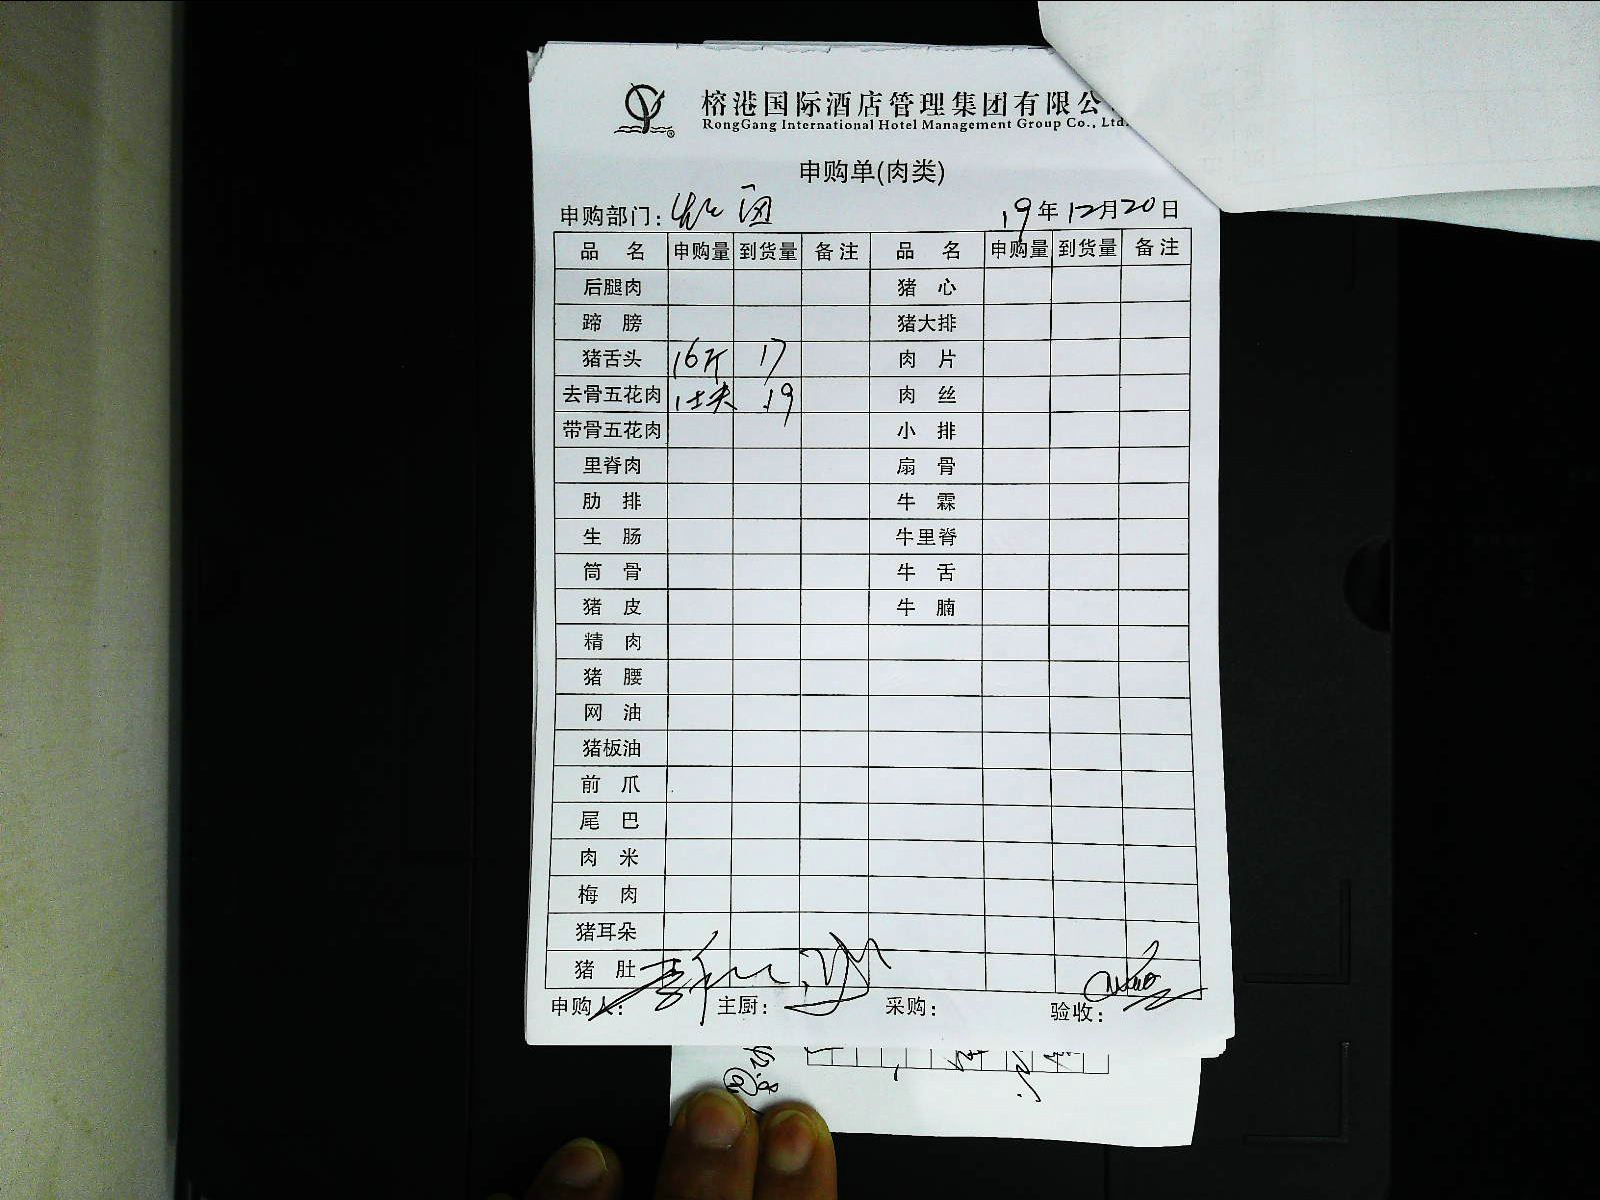 榕港国际酒店管理集团有限公
RongGang International Hotel Management Group Co., Ltd.
申购单(肉类)
申购部门: 19年12月20日
品名 申购量 到货量 备注 品名 申购量 到货量 备注
后腿肉 猪心
蹄膀 猪大排
猪舌头 16斤 17 肉片
去骨五花肉 19 肉丝
带骨五花肉 小排
里脊肉 扇骨
肋排 牛霖
生肠 牛里脊
筒骨 牛舌
猪皮 牛腩
精肉
猪腰
网油
猪板油
前爪
尾巴
肉米
梅肉
猪耳朵
猪肚
申购人: 主厨: 采购: 验收: